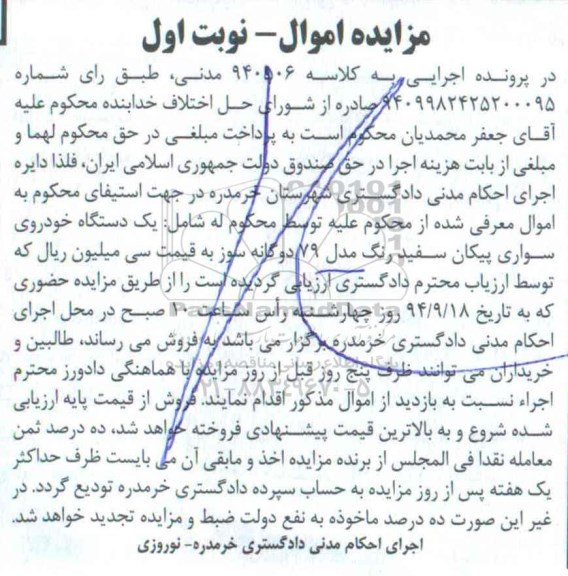 مزایده اموال- نوبت اول
در پرونده اجرایی به کلاسه ۹۴۰۵۰۶ مدنی، طبق رای شماره
۹۴۰۹۹۸۲۴۲۵۲۰۰۰۹۵ صادره از شورای حل اختلاف خدابنده محکوم علیه
آقای جعفر محمدیان محکوم است به پرداخت مبلغی در حق محکوم لهما و
مبلغی از بابت هزینه اجرا در حق صندوق دولت جمهوری اسلامی ایران، فلذا دایره
اجرای احکام مدنی دادگستری شهرستان خرمدره در جهت استیفای محکوم به
اموال معرفی شده از محکوم علیه توسط محکوم له شامل: یک دستگاه خودروی
سواری پیکان سفید رنگ مدل ۷۹ دوگانه سوز به قیمت سی میلیون ریال که
توسط ارزیاب محترم دادگستری ارزیابی گردیده است را از طریق مزایده حضوری
که به تاریخ ۹۴/۹/۱۸ روز چهارشنبه رأس ساعت صبح در محل اجرای
احکام مدنی دادگستری خرمدره برگزار می باشد به فروش می رساند، طالبین و
خریداران می توانند ظرف پنج روز قبل از روز مزایده با هماهنگی دادورز محترم
اجراء نسبت به بازدید از اموال مذکور اقدام نمایند. فروش از قیمت پایه ارزیابی
شده شروع و به بالاترین قیمت پیشنهادی فروخته خواهد شد، ده درصد ثمن
معامله نقدا فی المجلس از برنده مزایده اخذ و مابقی آن می بایست ظرف حداکثر
یک هفته پس از روز مزایده به حساب سپرده دادگستری خرمدره تودیع گردد. در
غیر این صورت ده درصد ماخوذه به نفع دولت ضبط و مزایده تجدید خواهد شد.
اجرای احکام مدنی دادگستری خرمدره- نوروزی